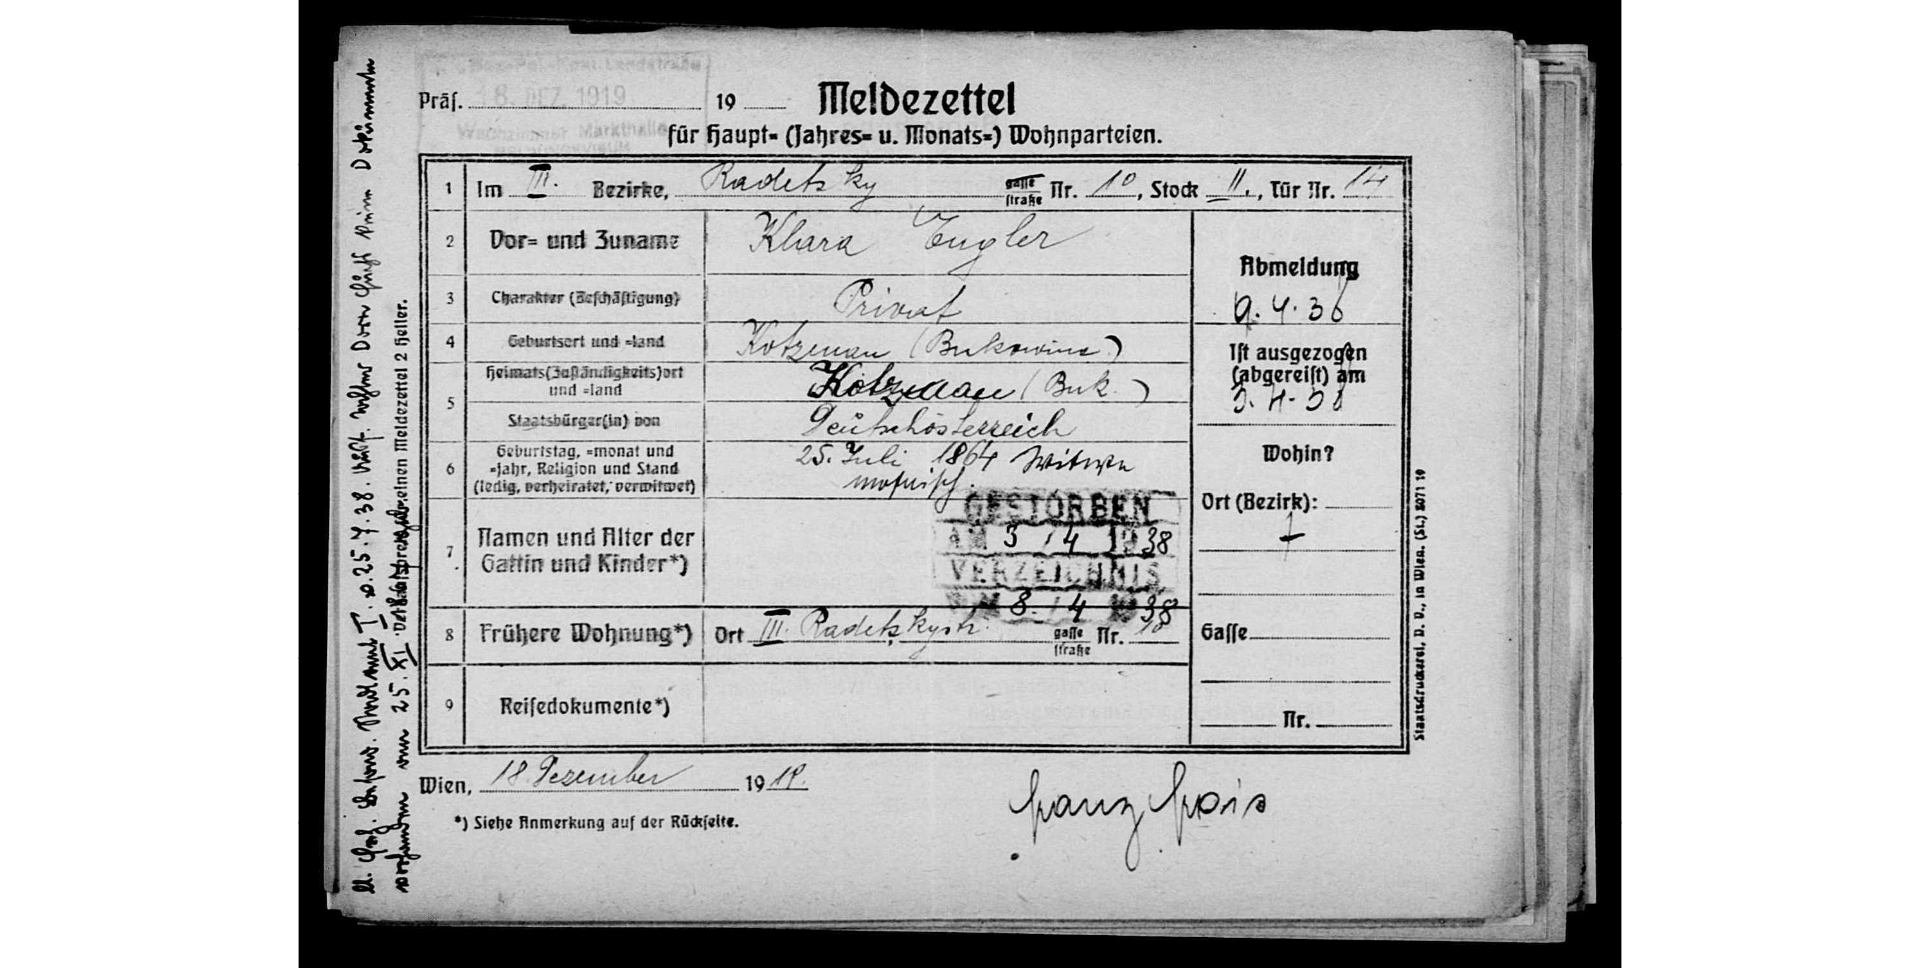 Präs. 18. DEZ. 1919 19
Meldezettel
für Haupt- (Jahres- u. Monats-) Wohnparteien.
1 Im III. Bezirke, Radetzky gasse straße Nr. 10, Stock II., Tür Nr. 14
2 Vor- und Zuname Klara Engler
3 Charakter (Beschäftigung) Privat
4 Geburtsort und -land Kotzman (Bukowina)
5 Heimats(Zuständigkeits)ort und -land Kotzman (Buk.)
Staatsbürger(in) von Deutschösterreich
6 Geburtstag, -monat und
-jahr, Religion und Stand
(ledig, verheiratet, verwitwet)
25. Juli 1864 Witwe
mosaisch.
7 Namen und Alter der
Gattin und Kinder*)
GESTORBEN
AM 3/4 1938
VERZEICHNIS
VOM 8./4 1938
8 Frühere Wohnung*) Ort III. Radetzkystr. gasse straße Nr. 10
9 Reisedokumente*)
Abmeldung
9.4.38
Ist ausgezogen
(abgereist) am
3.4.38
Wohin?
Ort (Bezirk):
†
Gasse
Nr.
Wien, 18. Dezember 1919.
*) Siehe Anmerkung auf der Rückseite.
Staatsdruckerei, D. V., in Wien. (St.) 5071 19
Verkaufspreis für einen Meldezettel 2 Heller.